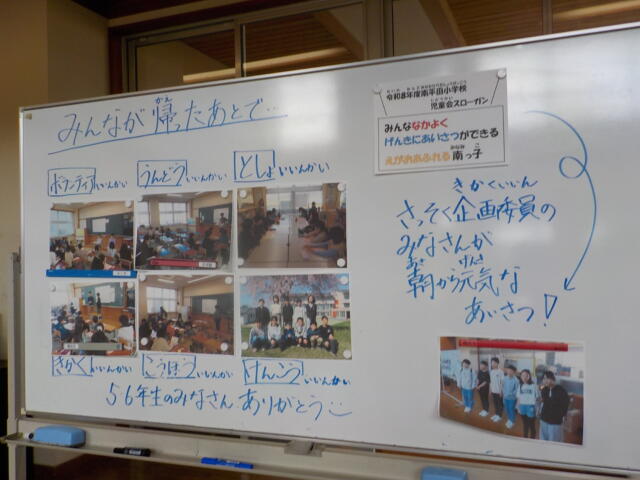 みんなが帰ったあとで…
かえ
ボランティアいいんかい
うんどういいんかい
としょいいんかい
きかくいいんかい
こうほういいんかい
けんこういいんかい
56年生のみなさん ありがとう
令和8年度南平田小学校
じどうかい
児童会スローガン
みんななかよく
げんきにあいさつができる
えがおあふれる南っ子
みなみ こ
きかくいいん
さっそく企画委員の
みなさんが
あさ げんき
朝から元気な
あいさつ!